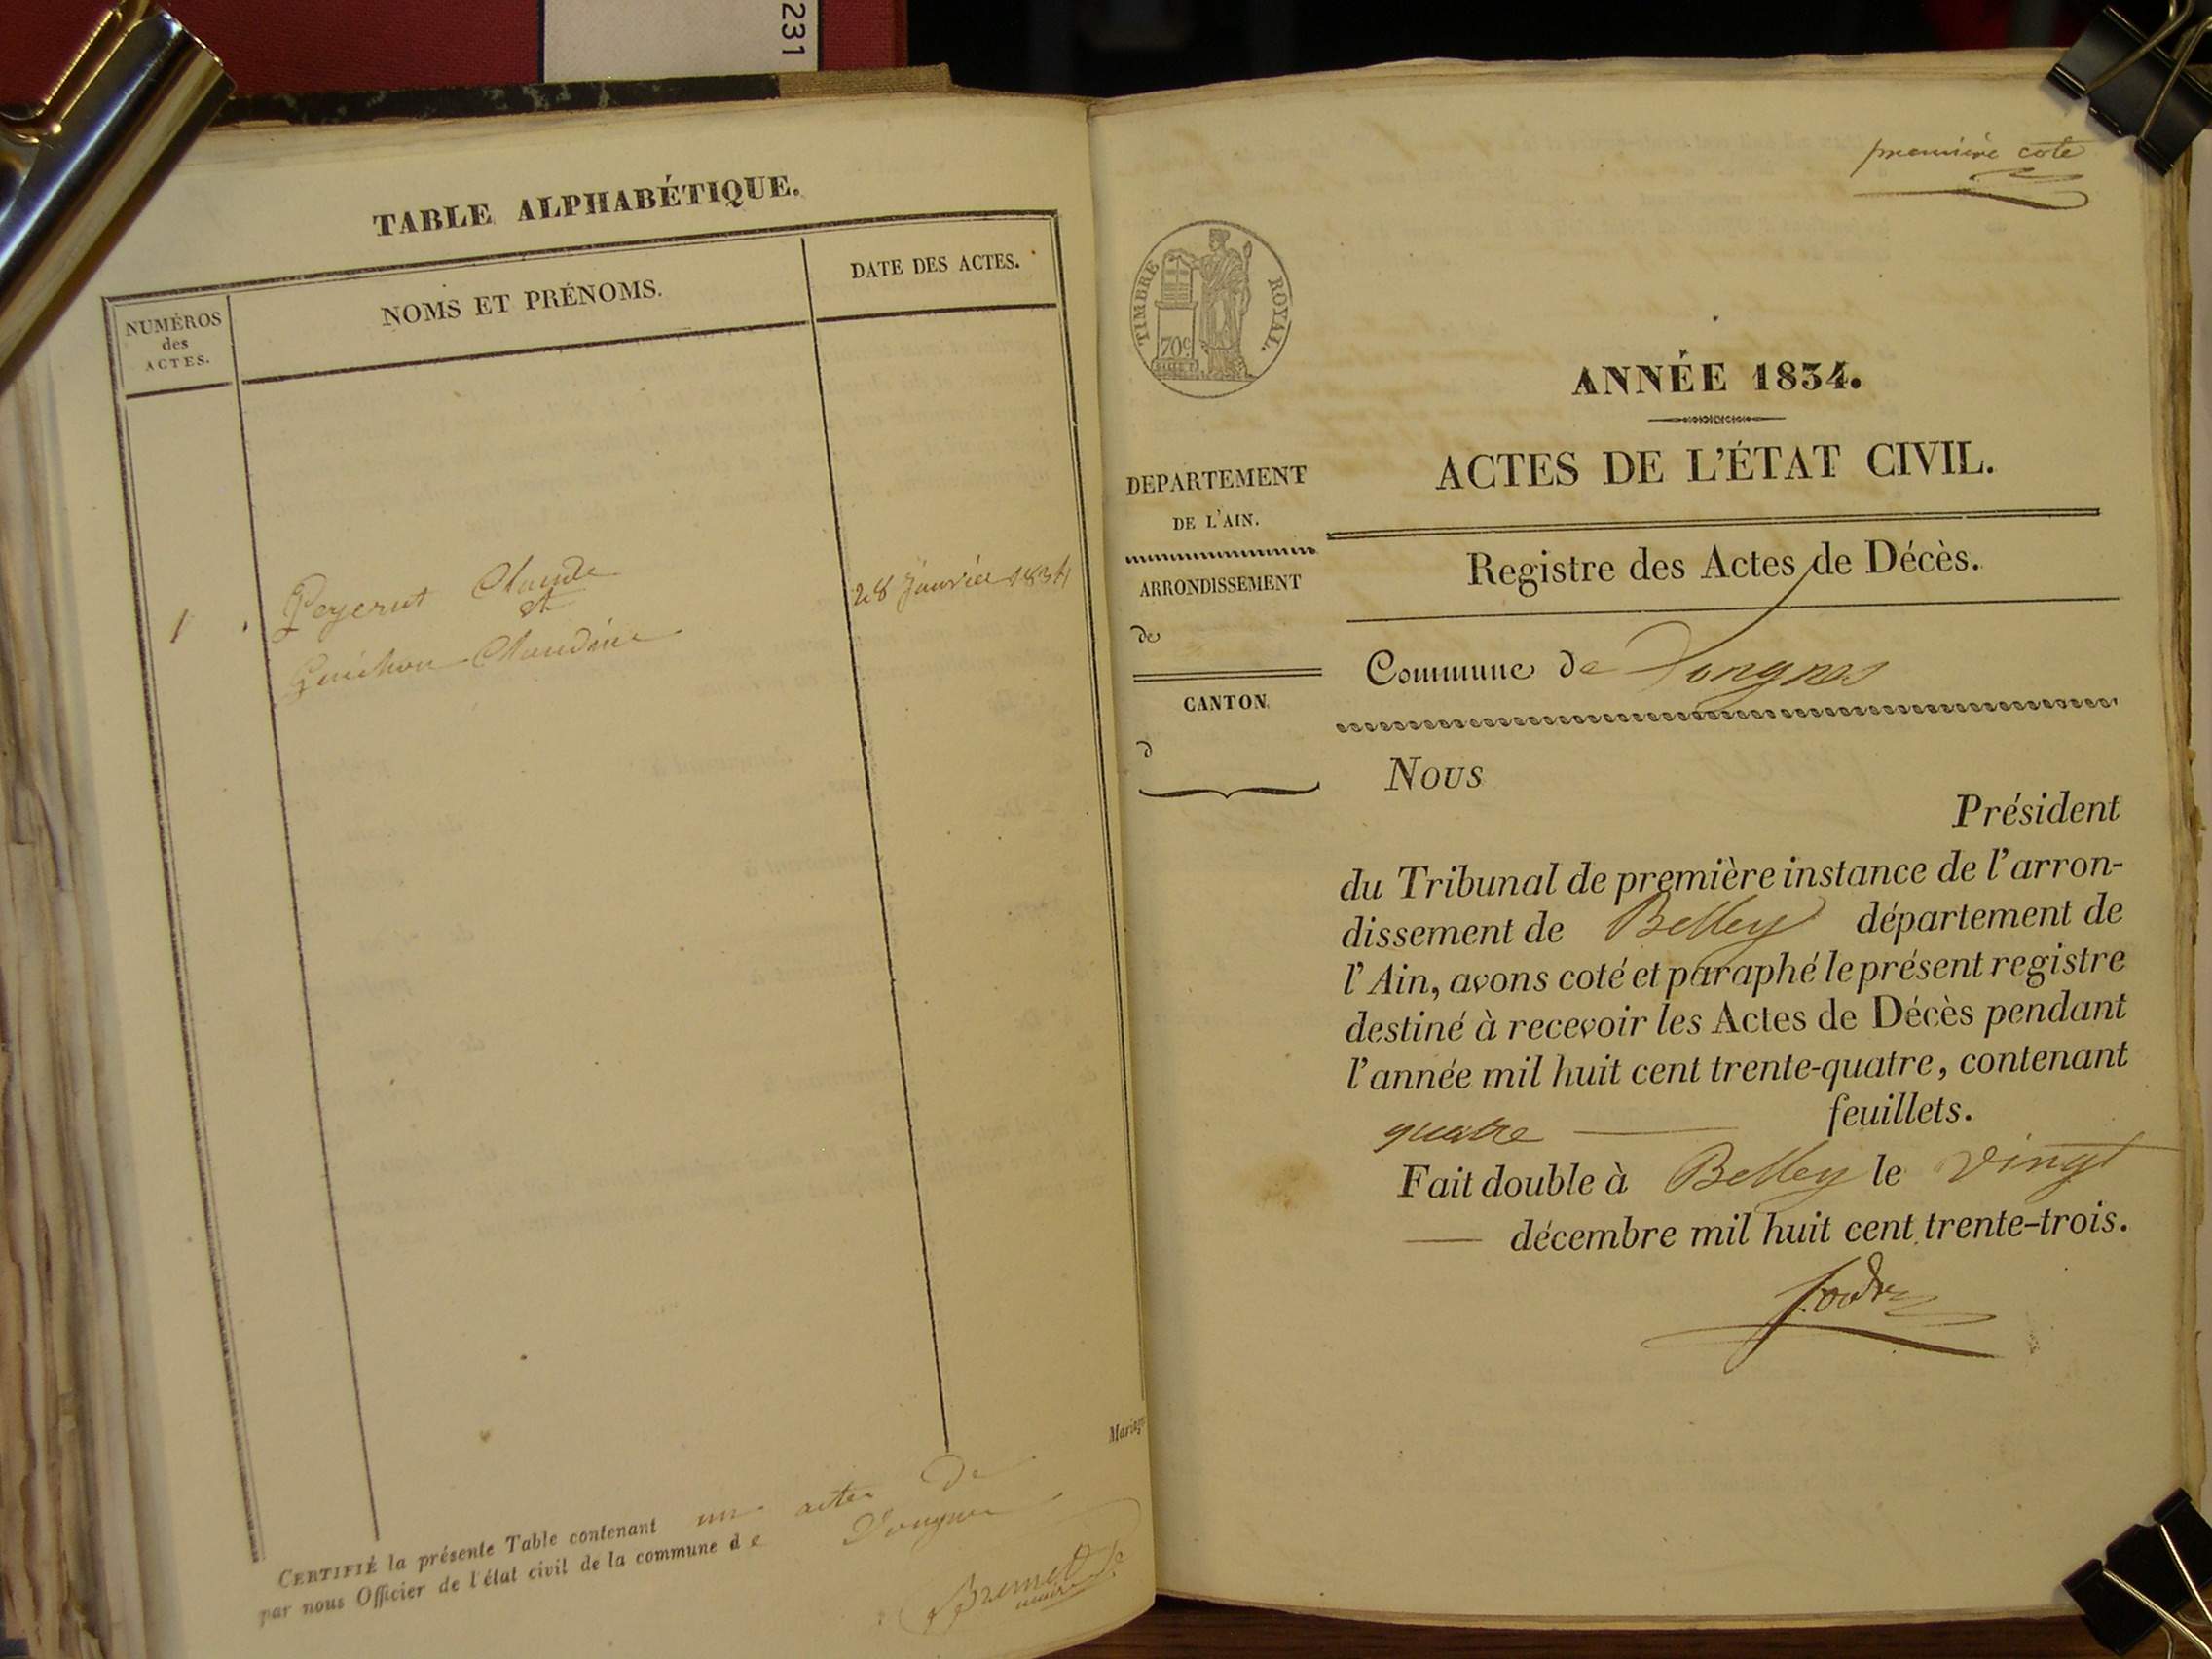 231
TABLE ALPHABÉTIQUE.
NUMÉROS
des
ACTES.
NOMS ET PRÉNOMS.
DATE DES ACTES.
1
Peyerut Claude
et
Guichon Claudine
28 Janvier 1834
Mariage
CERTIFIÉ la présente Table contenant un actes de
par nous Officier de l'état civil de la commune de Vongnes
maire
première cote
TIMBRE ROYAL.
70c
ANNÉE 1834.
ACTES DE L'ÉTAT CIVIL.
DEPARTEMENT
DE L'AIN.
ARRONDISSEMENT
de
CANTON
d
Registre des Actes de Décès.
Commune de Vongnes
Nous
Président
du Tribunal de première instance de l'arron-
dissement de Belley département de
l'Ain, avons coté et paraphé le présent registre
destiné à recevoir les Actes de Décès pendant
l'année mil huit cent trente-quatre, contenant
quatre feuillets.
Fait double à Belley le vingt
décembre mil huit cent trente-trois.